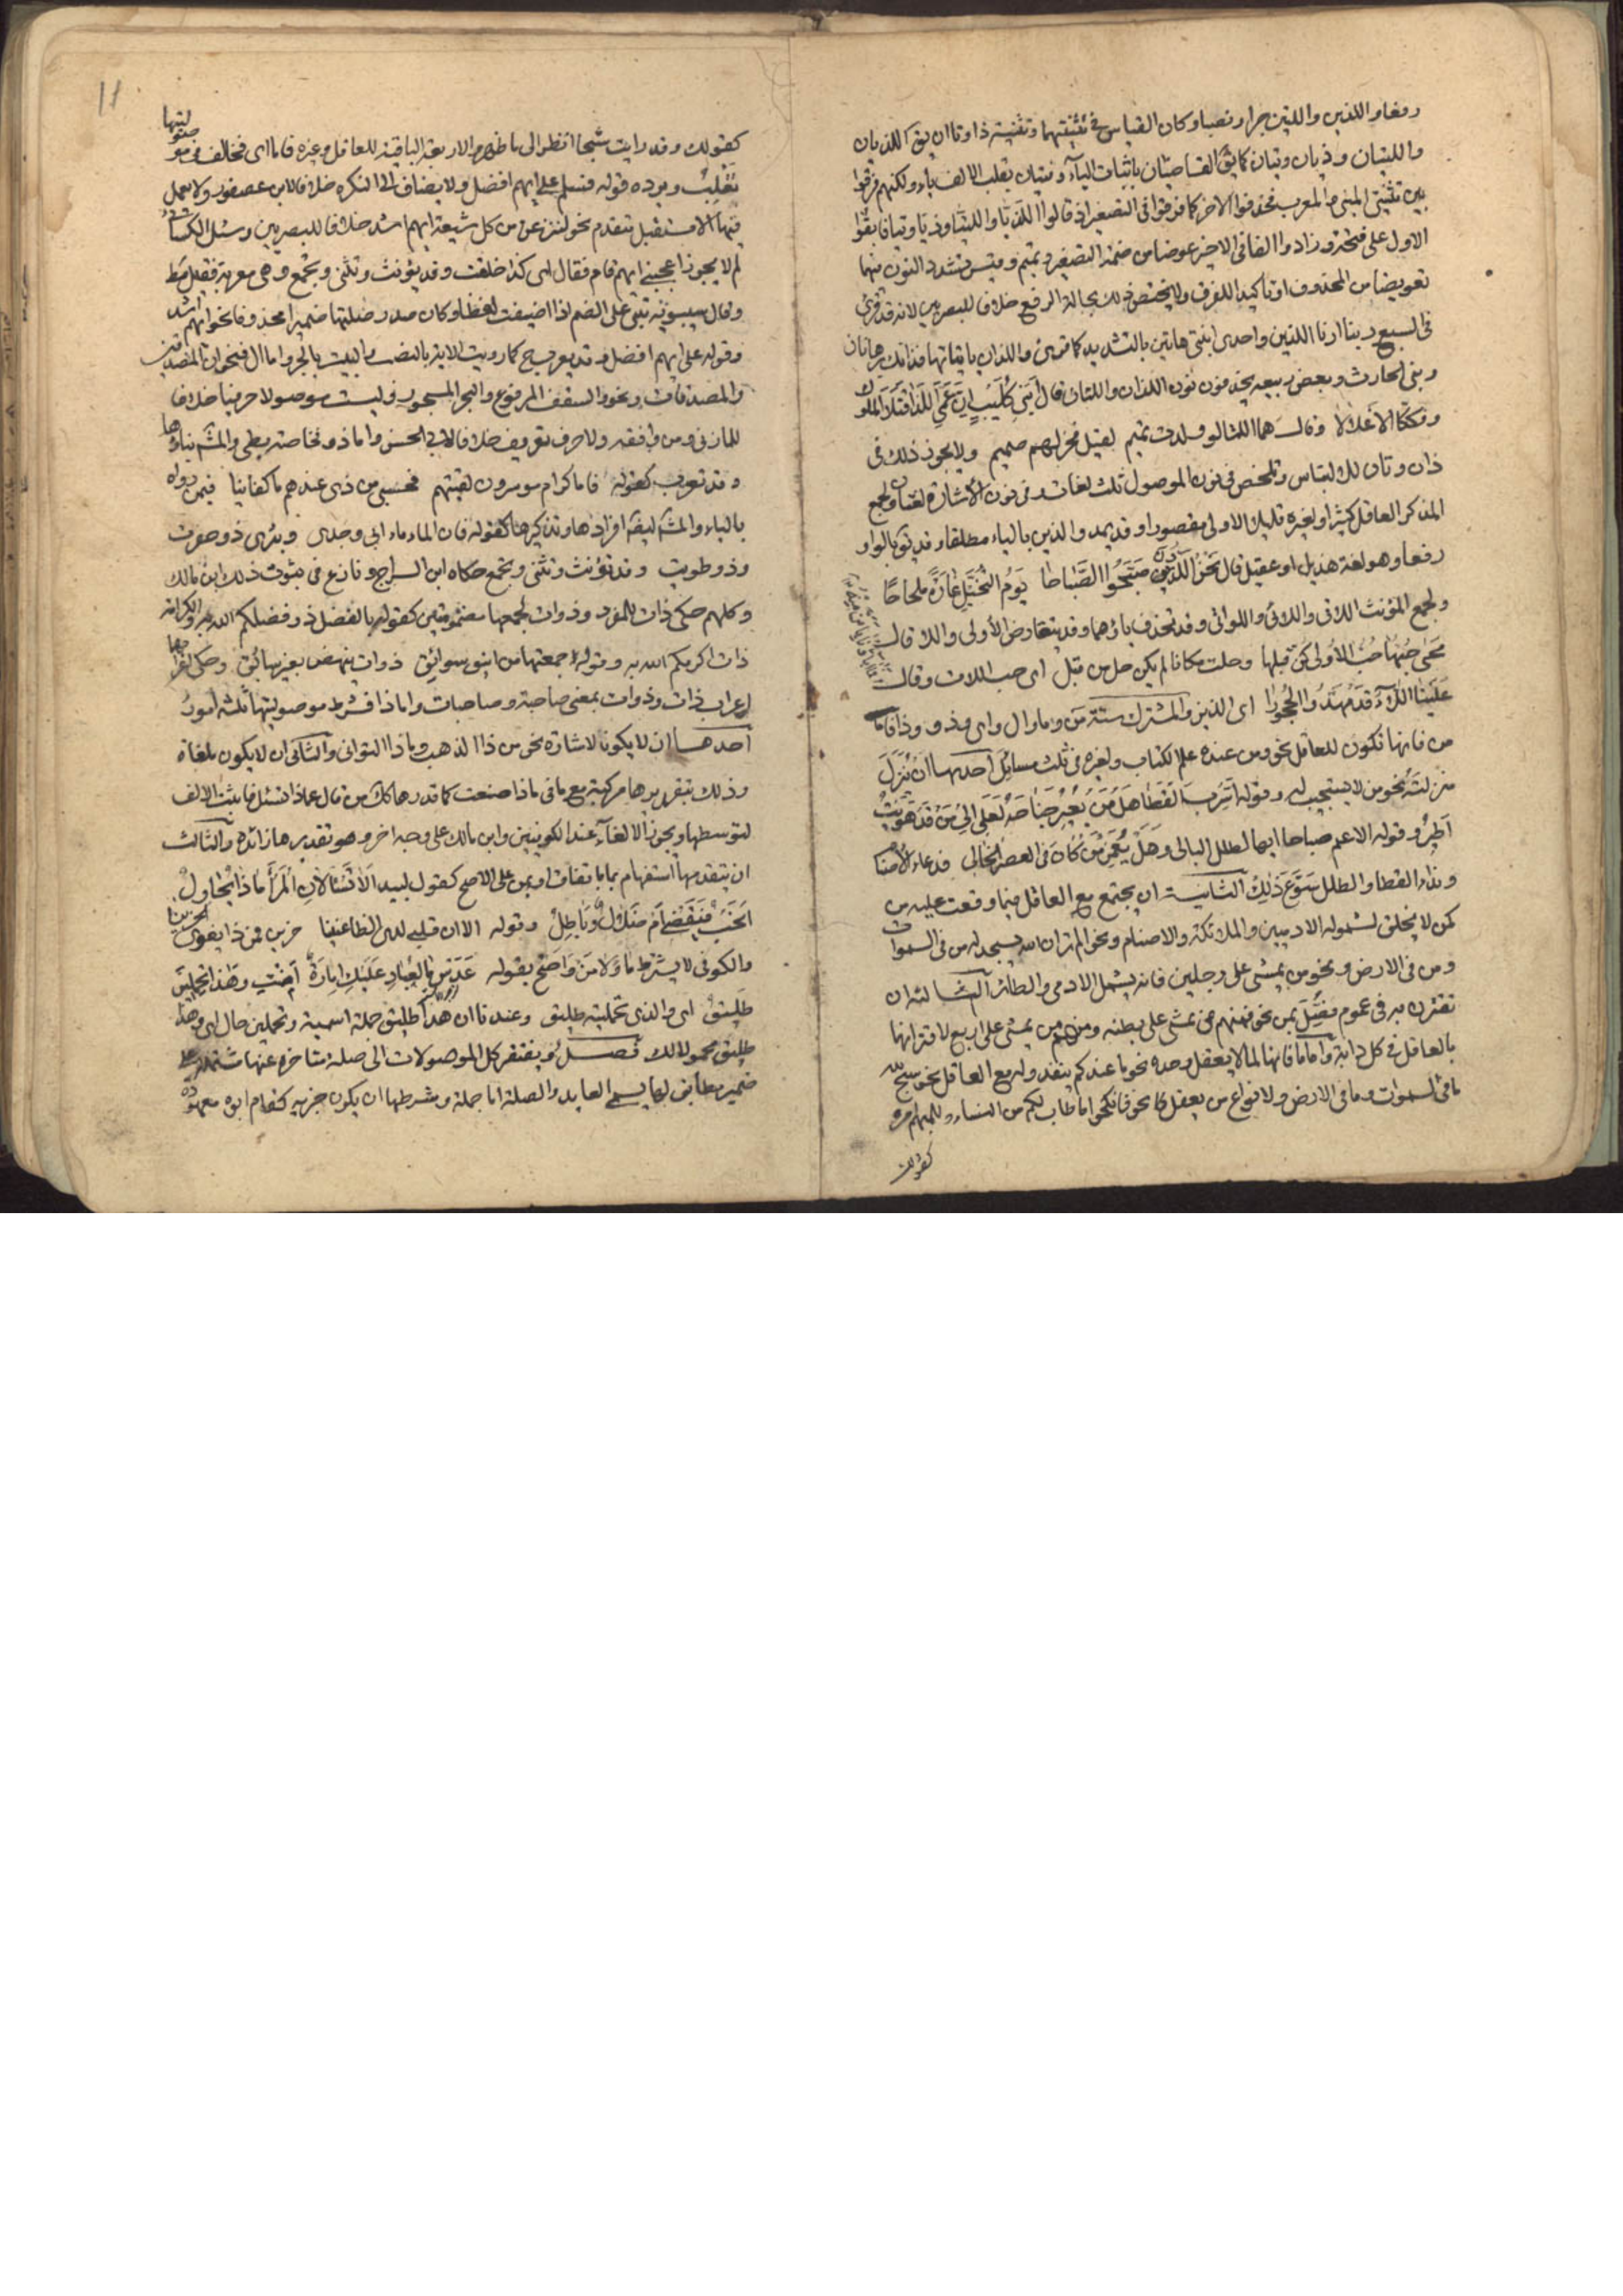 رفعا واللذين واللتين جرا ونصبا وكان القياس في تثنيتهما وتثنية ذا وتا ان يق اللذيان
واللتيان وذيان وتيان كما يق القاضيان باثبات الياء وفتيان بقلب الالف ياء ولكنهم فرقوا
بين تثنيتى المبنى والمعرب فحذفوا الاخر كما فرقوا فى التصغير اذ قالوا اللذيا واللتيا وذيا وتيا فابقوا
الاول على فتحته وزادوا الفا فى الاخر عوضا من ضمة التصغير وتميم وقيس تشدد النون منهما
تعويضا من المحذوف او تاكيدا للفرق ولا يختص ذلك بحالة الرفع خلافا للبصريين لانه قد قرئ
فى السبع ربنا ارنا اللذين واحدى ابنتى هاتين بالتشديد كما قرئ واللذان ياتيانها فذانك برهانان
وبنى الحارث وبعض ربيعه يحذفون نون اللذان واللتان قال أبنى كليب ان عمى اللذا قتلا الملوك
وفككا الاغلالا وقال هما اللتا لو ولدت تميم لقيل فخر لهم صميم ولا يجوز ذلك فى
ذان وتان للالتباس وتلخص فى نون الموصول ثلث لغات وفى نون الاشارة لغتان ولجمع
المذكر العاقل كثيرا ولغيره قليلا الاولى مقصورا وقد يمد والذين بالياء مطلقا وقد يق بالواو
رفعا وهو لغة هذيل او عقيل قال نحن اللذون صبحوا الصباحا يوم النخيل غارة ملحاحا
ولجمع المؤنث اللاتى واللائى واللواتى وقد تحذف ياؤهما وقد يتعارض الأولى واللا قال
محى حبها حب الأولى كن قبلها وحلت مكانا لم يكن حل من قبل اى حب اللات وقال
علينا اللآء قد مهدوا الحجورا اى الذين والمشترك ستة من وما وال واى وذو وذا فاما
من فانها تكون للعاقل نحو ومن عنده علم الكتاب ولغيره فى ثلث مسائل احدها ان ينزل
منزلته نحو من لا يستجيب له وقوله اسرب القطا هل من يعير جناحه لعلى الى من قد هويت
اطير وقوله الا عم صباحا ايها الطلل البالى وهل يعمن من كان فى العصر الخالى فدعاء الاصنا
ونداء القطا والطلل سوغ ذلك الثانية ان يجتمع مع العاقل فيما وقعت عليه من
كمن لا يخلق لشموله الادميين والملائكة والاصنام ونحو الم تر ان الله يسجد له من فى السموات
ومن فى الارض ونحو من يمشى على رجلين فانه يشمل الادمى والطائر الثالثة ان
تقترن به فى عموم فصل بمن نحو فمنهم من يمشى على بطنه ومنهم من يمشى على اربع لاقترانها
بالعاقل فى كل دابة واما ما فانها لما لا يعقل وحده نحو ما عندكم ينفد وله مع العاقل نحو سبح لله
ما فى السموات وما فى الارض ولانواع من يعقل كما نحو فانكحوا ما طاب لكم من النساء وللمبهم امره
كقولك
11
كقولك وقد رايت شبحا انظر الى ما ظهر والاربعة الباقية للعاقل وغيره فاما اى فخالف فى موصوليتها
ثعلب ويرده قوله فسلم على ايهم افضل ولا يضاف الى النكرة خلافا لابن عصفور ولا يعمل
فيها الا مستقبل متقدم نحو لننزعن من كل شيعة ايهم اشد خلافا للبصريين وسئل الكسائى
لم لا يجوز اعجبنى ايهم قام فقال اى كذا خلقت وقد يؤنث وتثنى وتجمع وهى معربة فقيل مط
وقال سيبويه تبنى على الضم اذا اضيفت لفظا وكان صدر صلتها ضميرا محذوفا نحو ايهم اشد
وقوله على ايهم افضل وقد يعرب ح كما رويت الاية بالنصب والبيت بالجر واما ال فنحو ان المصدقين
والمصدقات ونحو السقف المرفوع والبحر المسجور وليست موصولا حرفيا خلافا
للمازنى ومن وافقه ولا حرف تعريف خلافا لابى الحسن واما ذو فخاصة بطى والمش بناؤها
وقد تعرب كقوله فاما كرام موسرون لقيتهم فحسبى من ذى عندهم ما كفانيا فيمن رواه
بالياء والمش ايضا افرادها وتذكيرها كقوله فان الماء ماء ابى وجدى وبئرى ذو حفرت
وذو طويت وقد تؤنث وتثنى وتجمع حكاه ابن السراج ونازع فى ثبوت ذلك ابن مالك
وكلهم حكى ذات للمفرد وذوات لجمعها مضمومتين كقوله بالفضل ذو فضلكم الله به والكرامة
ذات اكرمكم الله به وقوله جمعتها من اينق سوابق ذوات ينهضن بغير سائق وحكى اعرابهما
اعراب ذات وذوات بمعنى صاحبة وصاحبات واما ذا فشرط موصوليتها ثلثة امور
احدها ان لا يكون للاشارة نحو من ذا الذهب وماذا التوانى والثانى ان لا يكون ملغاة
وذلك بتقديرها مركبة مع ما فى ماذا صنعت كما قدرها كك من قال عماذا تسئل فاثبت الالف
لتوسطها ويجوز الالغاء عند الكوفيين وابن مالك على وجه اخر وهو تقديرها زائدة والثالث
ان يتقدمها استفهام بما باتفاق او بمن على الاصح كقول لبيد الا تسئلان المرأ ماذا يحاول
انحب فيقضى ام ضلال وباطل وقوله الا ان قلبى لدى الظاعنينا حزين فمن ذا يعزى الحزينا
والكوفى لا يشترط ما ولا من واضح بقوله عدس ما لعباد عليك امارة امنت وهذا تحملين
طليق اى والذى تحملينه طليق وعندنا ان هذا طليق جملة اسمية وتحملين حال اى وهذا
طليق محمولا لك فصل ويفتقر كل الموصولات الى صلة متاخرة عنها مشتملة على
ضمير مطابق لها يسمى العايد والصلة اما جملة وشرطها ان يكون خبرية كقام ابوه معهودة